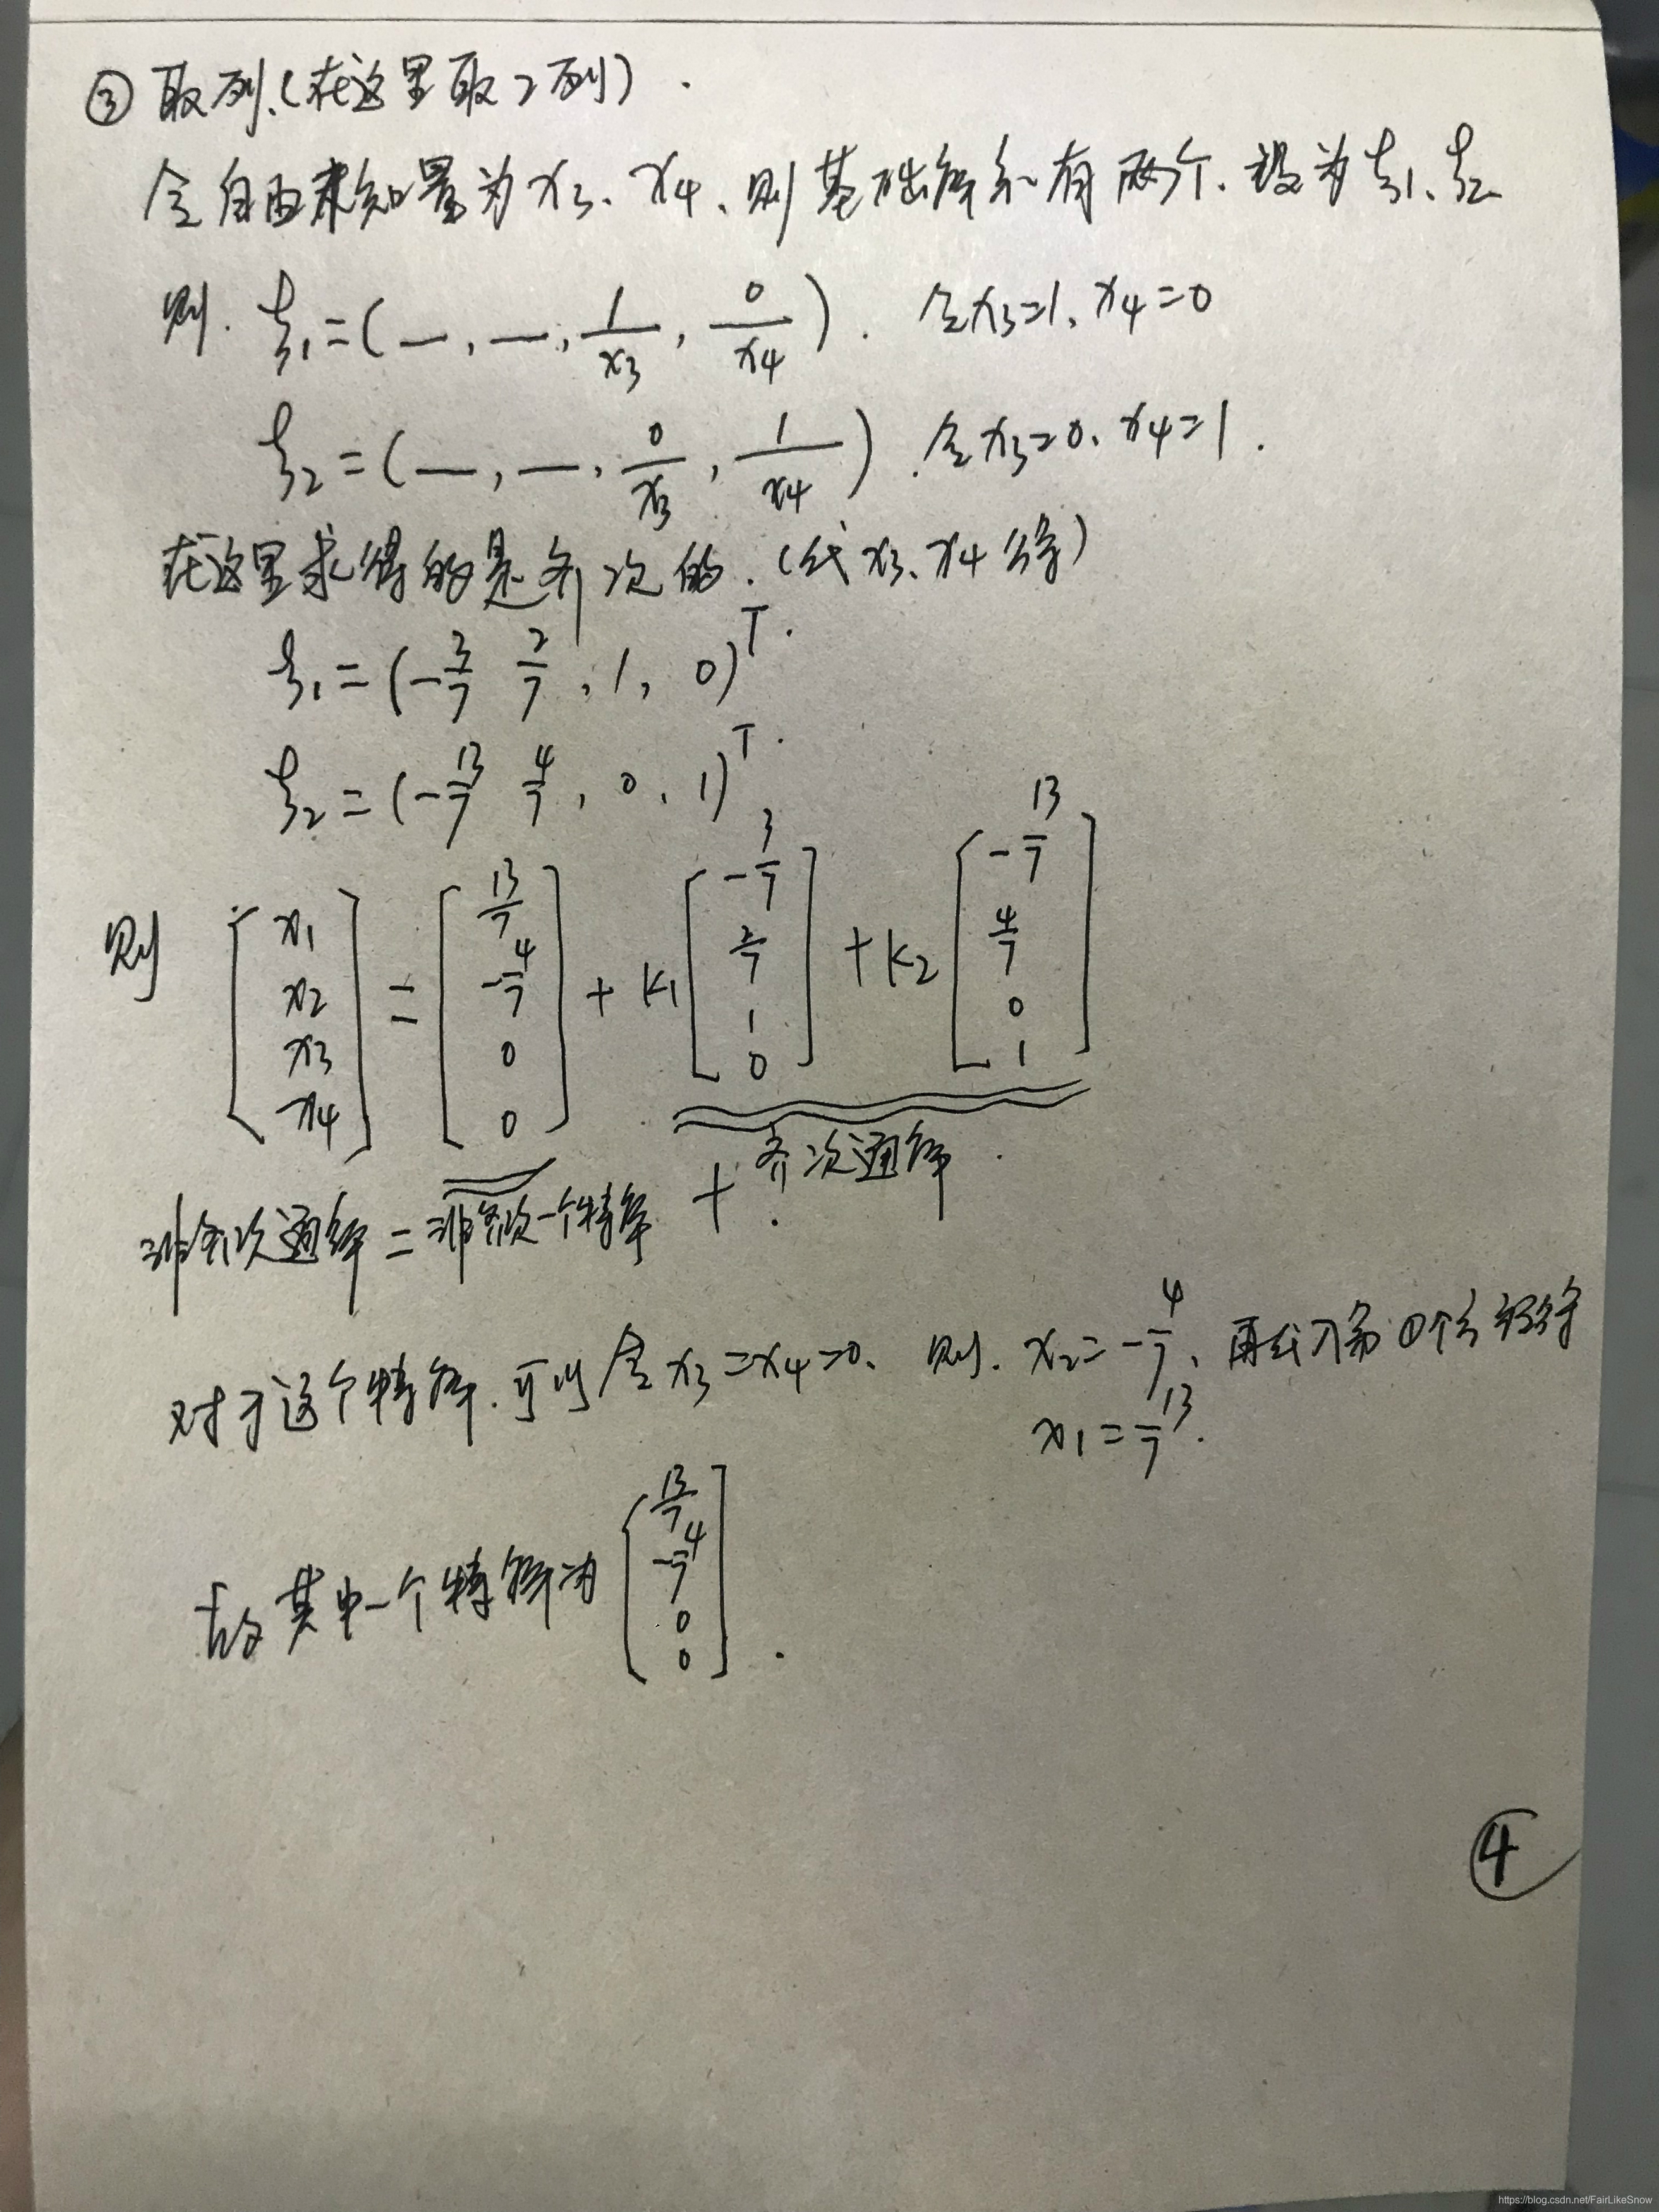 ③ 取列.(在这里取2列).
令自由未知量为x₃、x₄、则基础解系有两个.设为ξ₁、ξ₂
则. ξ₁=(—,—,1/x₃,0/x₄). 令x₃=1、x₄=0
ξ₂=(—,—,0/x₃,1/x₄).令x₃=0、x₄=1.
在这里求得的是齐次的.(代x₃、x₄得)
ξ₁=(-3/7 2/7,1,0)ᵀ.
ξ₂=(-13/7 4/7,0,1)ᵀ.
则 [x₁ x₂ x₃ x₄]=[13/7 -4/7 0 0]+k₁[-3/7 2/7 1 0]+k₂[-13/7 4/7 0 1]
非齐次通解=非齐次一个特解+齐次通解.
对于这个特解.可以令x₃=x₄=0、则.x₂=-4/7、再代入第①个方程得
x₁=13/7.
故其中一个特解为[13/7 -4/7 0 0].
④
https://blog.csdn.net/FairLikeSnow